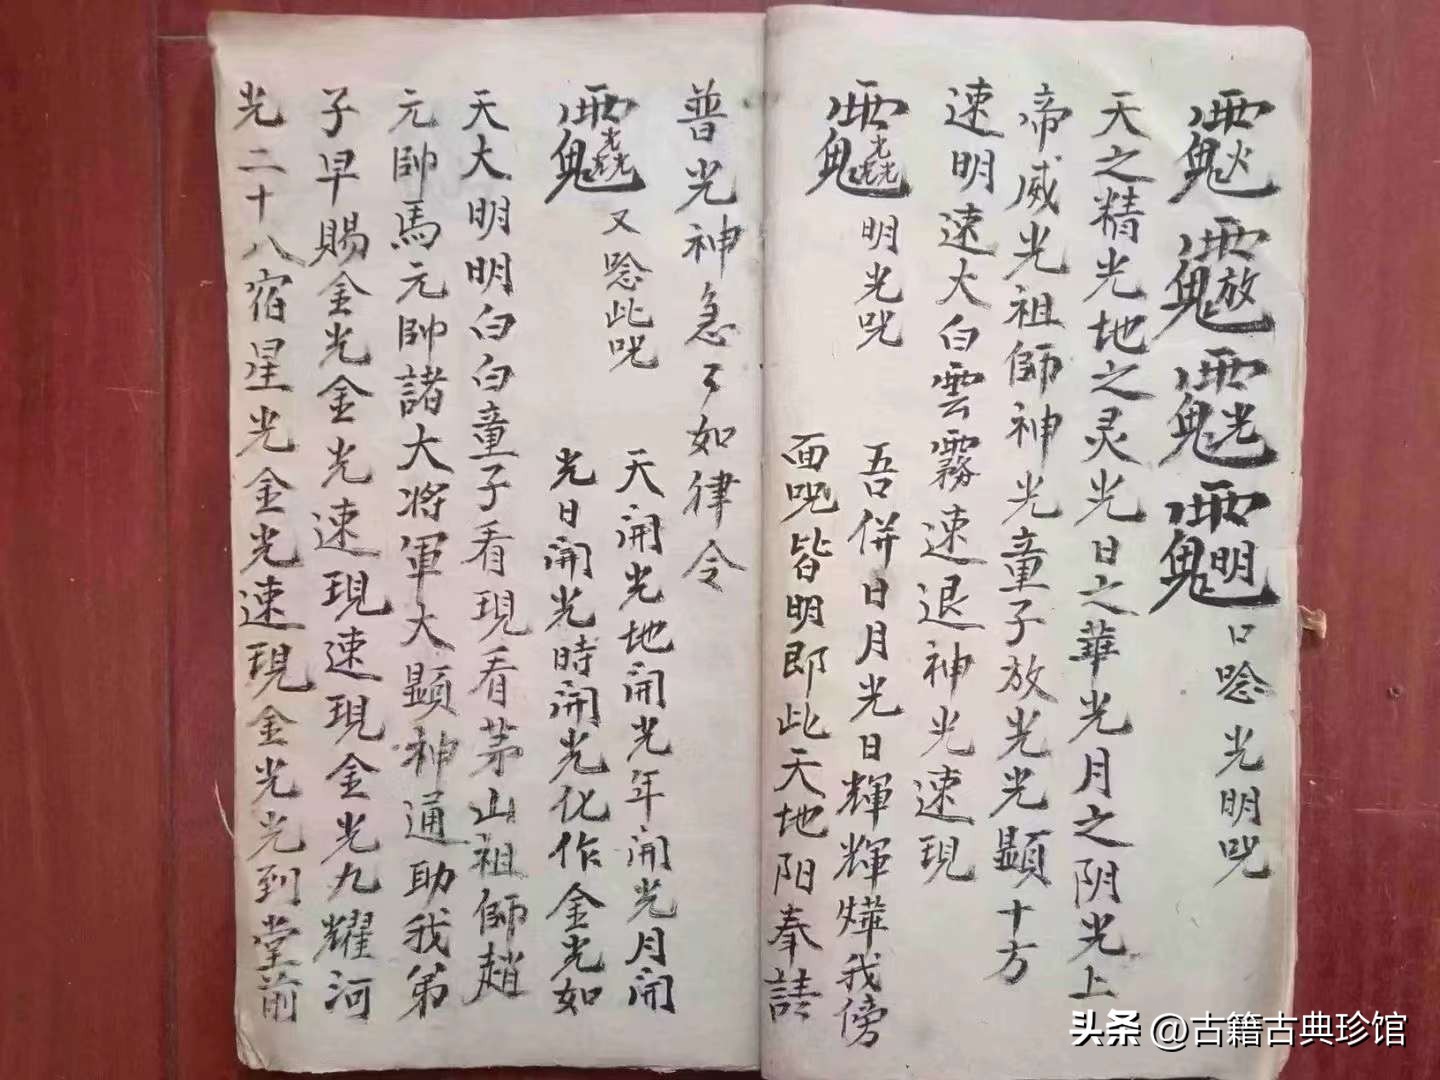 口唸光明呪
天之精光地之灵光日之華光月之阴光上
帝威光祖師神光童子放光光顯十方
速明速大白雲霧速退神光速現
明光呪
吾併日月光日輝輝燁我傍
面呪皆明即此天地阳奉請
普光神急々如律令
又唸此呪
天開光地開光年開光月開
光日開光時開光化作金光如
天大明明白白童子看現看茅山祖師趙
元帥馬元帥諸大将軍大顯神通助我弟
子早賜金光金光速現速現金光九耀河
光二十八宿星光金光速現金光光到堂前
头条 @古籍古典珍馆